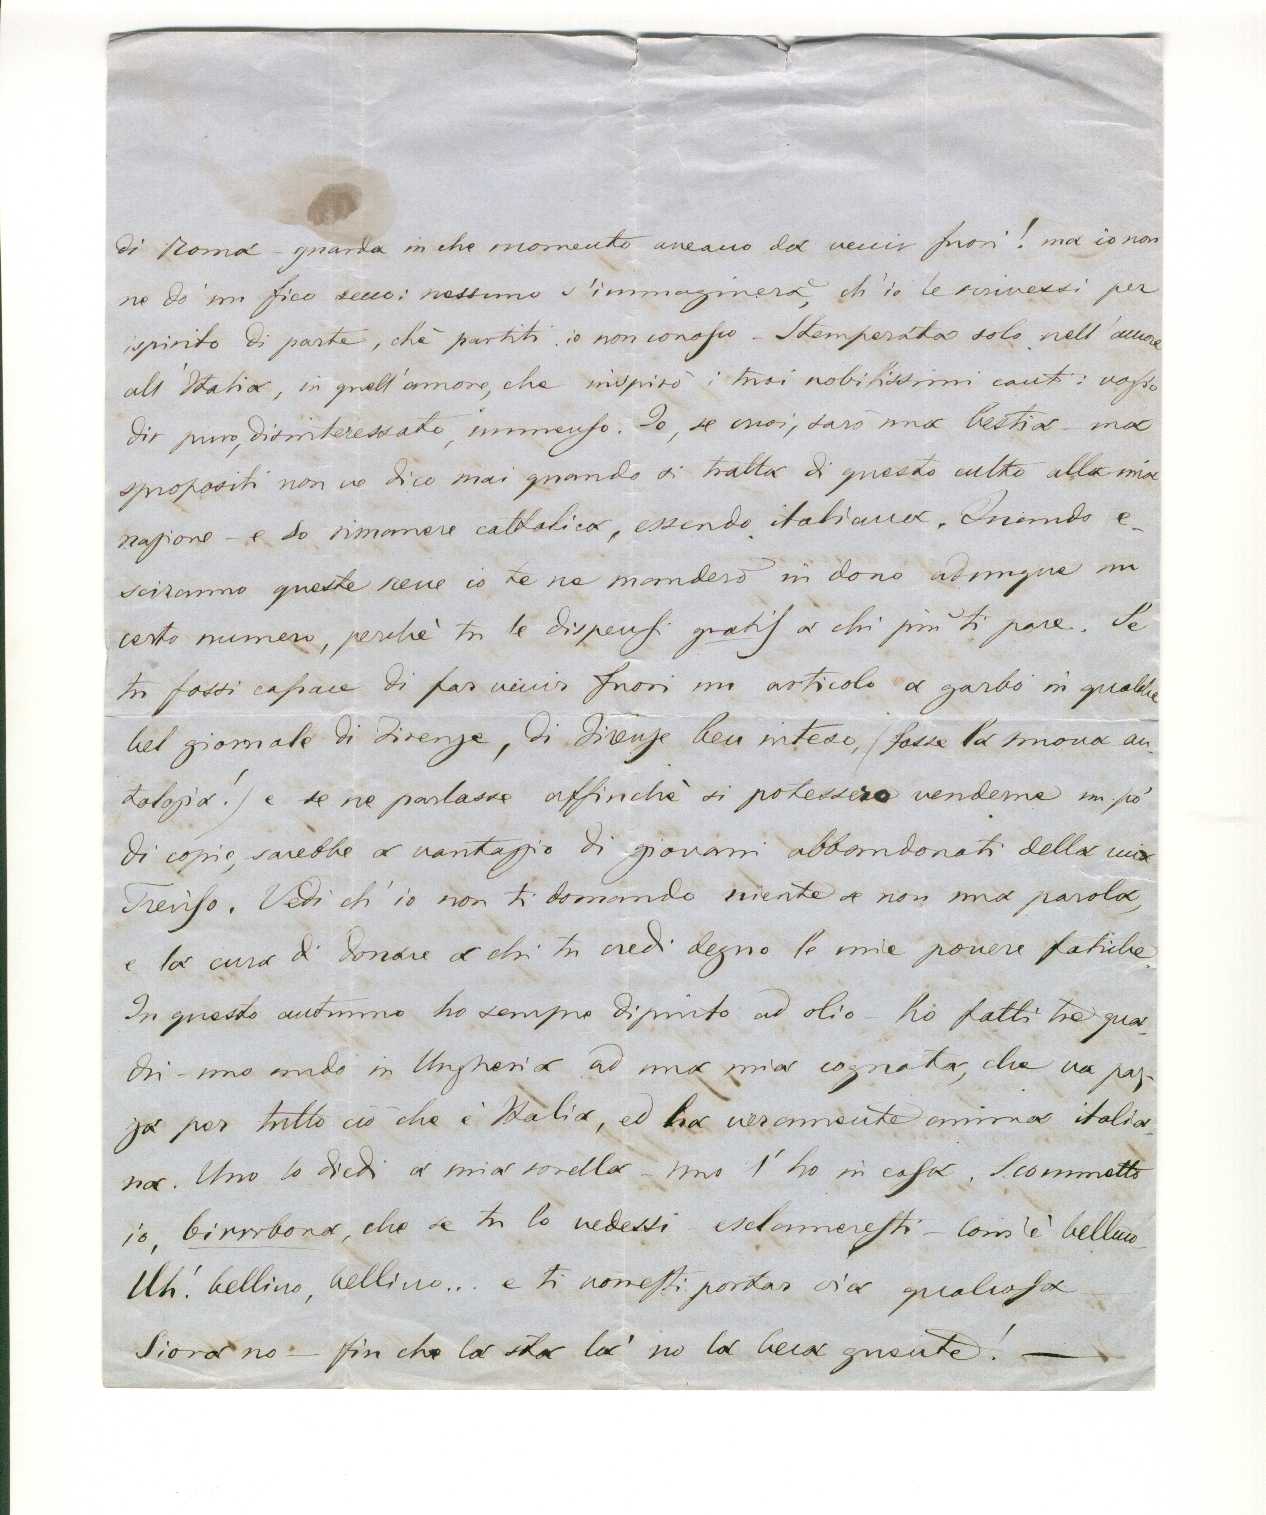 di Roma - guarda in che momento aveano da venir fuori! ma io non
ne dò un fico secco: nessuno s'immaginerà, ch'io le scrivessi per
ispirito di parte, chè partiti io non conosco - Stemperata solo nell'amore
all'Italia, in quell'amore, che inspirò i tuoi nobilissimi canti: vogso
dir puro, disinteressato, immenso. Io, se vuoi, sarò una bestia - ma
spropositi non ve dico mai quando si tratta di questo culto alla mia
nazione - e so rimanere cattolica, essendo italiana. Quando e-
sciranno queste cene io te ne manderò in dono adunque un
certo numero, perchè tu le dispensi gratis a chi più ti pare. Se
tu fossi capace di far venir fuori un articolo a garbo in qualche
bel giornale di Firenze, di Firenze ben inteso, (fosse la nuova an-
tologia!) e se ne parlasse affinchè si potessero venderne un pò
di copie, sarebbe a vantaggio di giovani abbandonati della mia
Treviso. Vedi ch'io non ti domando niente se non una parola,
e la cura di donare a chi tu credi degno le mie povere fatiche.
In questo autunno ho sempre dipinto ad olio - hò fatti tre qua-
dri - uno andò in Ungheria ad una mia cognata, che va paz-
za per tutto ciò che è Italia, ed ha veramente anima italia-
na. Uno lo diedi a mia sorella - uno l'ho in casa. Scommetto
io, birrrbona, che se tu lo vedessi esclameresti - com'è bellino -
Uh! bellino, bellino... e ti vorresti portar via qualcosa
Siora no - fin che la sta là no la beca gnente! —